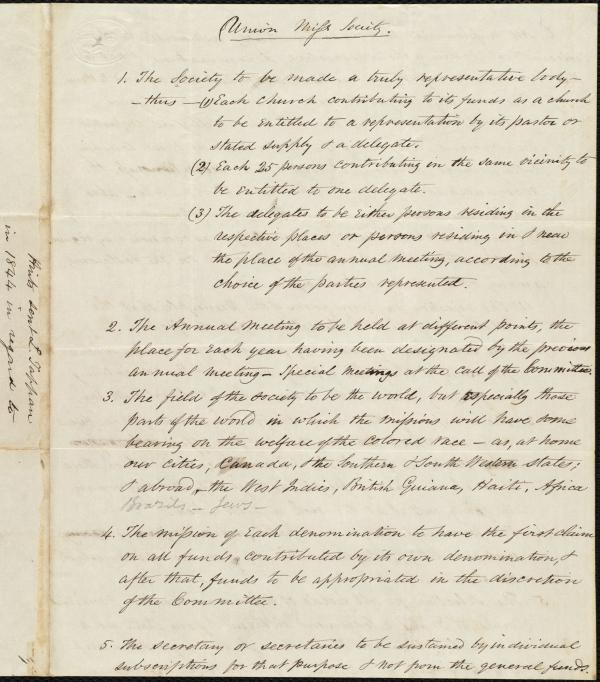 Union Miss Society.
1. The Society to be made a truly representative body —
— thus — (1) Each church contributing to its funds as a church
to be entitled to a representation by its pastor or
stated supply & a delegate.
(2) Each 25 persons contributing in the same vicinity to
be entitled to one delegate.
(3) The delegates to be either persons residing in the
respective places or persons residing in & near
the place of the annual meeting, according to the
choice of the parties represented.
2. The Annual Meeting to be held at different points, the
place for each year having been designated by the previous
annual meeting — Special meetings at the call of the Committee.
3. The field of the society to be the world, but especially those
parts of the world in which the missions will have some
bearing on the welfare of the colored race — as, at home
our cities, Canada, & the Southern & South Western states;
& abroad, the West Indies, British Guiana, Haiti, Africa
Brazils — Jews —
4. The mission of each denomination to have the first claim
on all funds contributed by its own denomination, &
after that, funds to be appropriated in the discretion
of the Committee.
5. The secretary or secretaries to be sustained by individual
subscriptions for that purpose & not from the general funds.
Hints sent L. Tappan
in 1844 in regard to